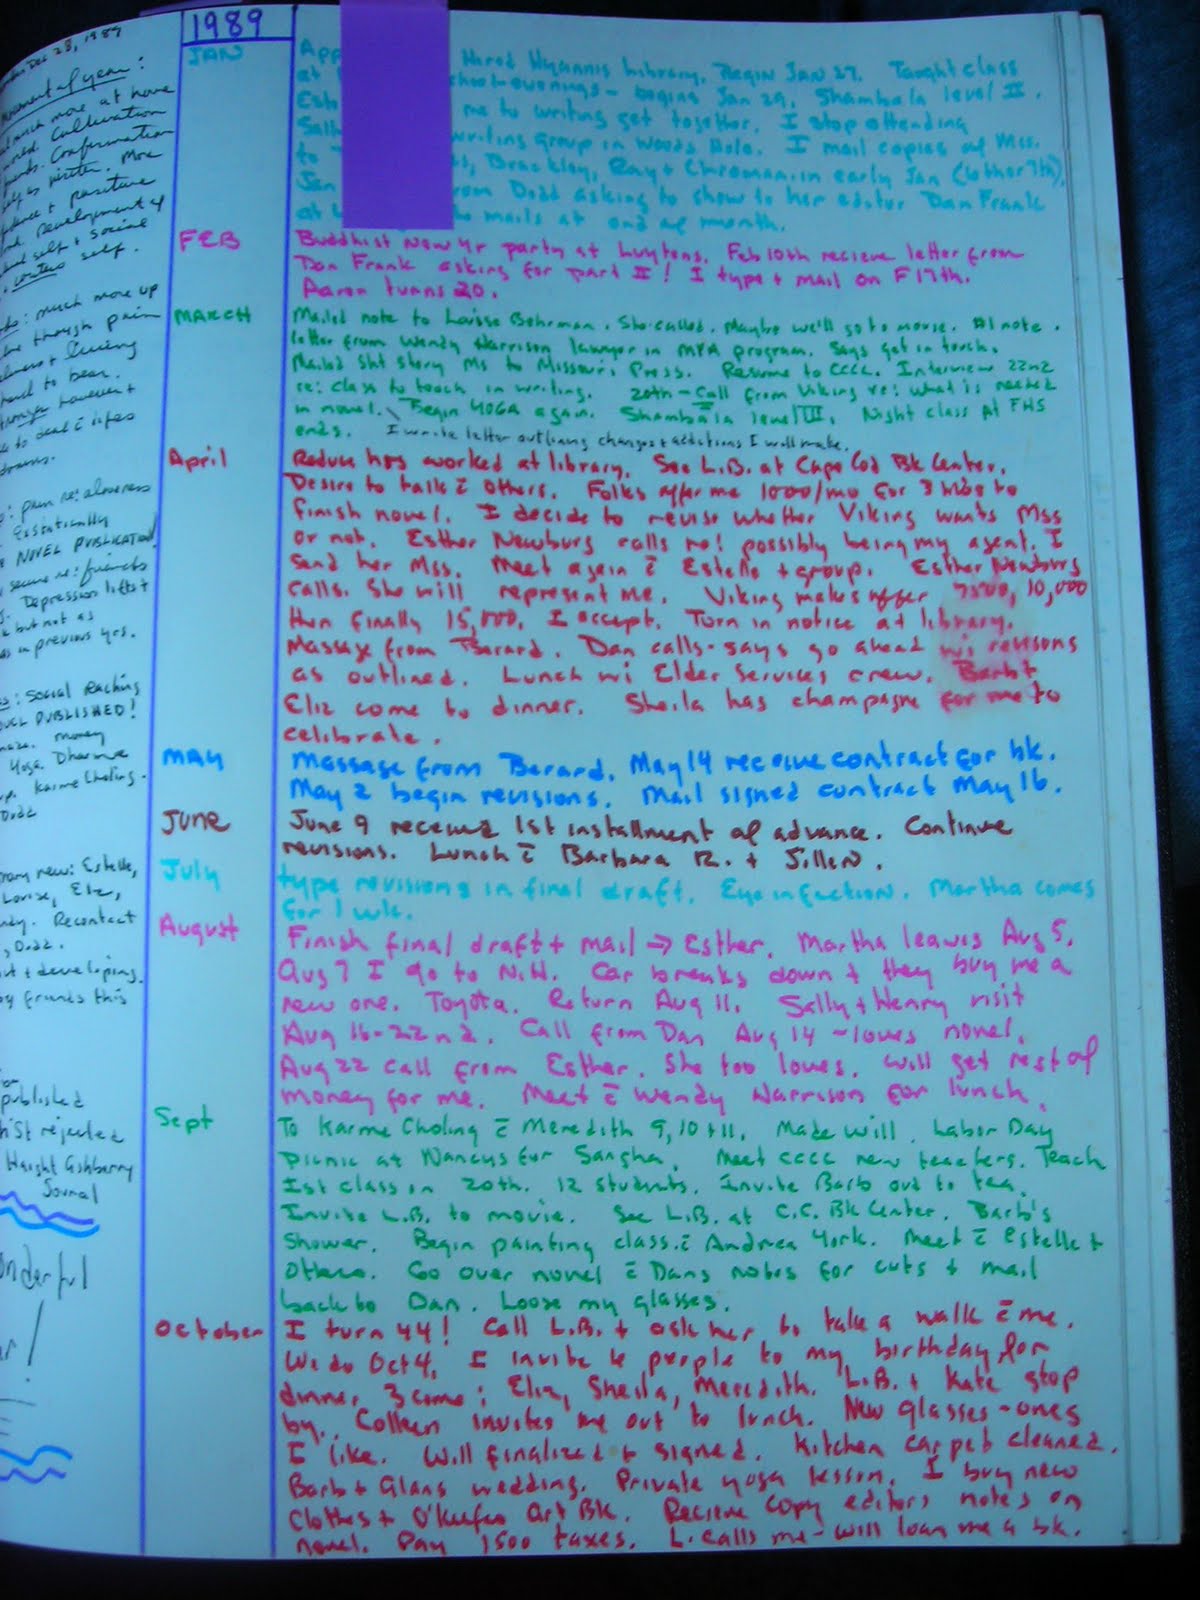 Dec 28, 1989
Movement of year:
much more at home
world. Cultivation
Confirmation
self as writer. More
+ positive
Development of
self + social
+ self.
much more up
though pain
+ living
hard to bear.
however +
to deal c̄ lifes
pain re: aloneness
Exstatically
NOVEL PUBLICATION!
secure re: friends
Depression lifts +
but not as
as in previous yrs.
: Social reaching
PUBLISHED!
money
Yoga. Dharma
Karme Choling.
Dodd
new: Estelle,
Louise, Eliz,
Recontact
, Dodd.
+ developing.
by friends this
published
rejected
Haight Ashberry
Journal
1989
JAN
App Hired Hyannis Library. Begin Jan 27. Taught class
at school-evenings - begins Jan 29. Shambala level II.
Est me to writing get together. I stop attending
Sall writing group in Woods Hole. I mail copies of Mss.
to Brackley, Ray + Chroman in early Jan (6th or 7th).
Jan from Dodd asking to show to her editor Dan Frank
at mails at end of month.
FEB
Buddhist New Yr party at Luytens. Feb 10th recieve letter from
Dan Frank asking for part II! I type + mail on F 17th.
Aaron turns 20.
MARCH
Mailed note to Louise Bohrman. She called. Maybe we'll go to movie. #1 note.
letter from Wendy Harrison lawyer in MFA program. Says get in touch.
Mailed sht story Ms to Missouri Press. Resume to CCCC. Interview 22nd
re: class to teach in writing. 20th - Call from Viking re: what is needed
in novel. Begin YOGA again. Shambala level III. Night class at FHS
ends. I write letter outlining changes + additions I will make.
April
Reduce hrs worked at library. See L.B. at Cape Cod Bk Center.
Desire to talk c̄ others. Folks offer me 1000/mo for 3 mos to
finish novel. I decide to revise whether Viking wants Mss
or not. Esther Newburg calls re: possibly being my agent. I
send her Mss. Meet again c̄ Estelle + group. Esther Newburg
calls. She will represent me. Viking makes offer 7500, 10,000
then finally 15,000. I accept. Turn in notice at library.
Massage from Berard. Dan calls - says go ahead wi revisons
as outlined. Lunch wi Elder Services crew. Barb +
Eliz come to dinner. Sheila has champagne for me to
celibrate.
MAY
Massage from Berard. May 14 receive contract for bk.
May 2 begin revisions. Mail signed contract May 16.
June
June 9 receive 1st installment of advance. Continue
revisions. Lunch c̄ Barbara R. + Jillen.
July
type revisions in final draft. Eye infection. Martha comes
for 1 wk.
August
Finish final draft + mail → Esther. Martha leaves Aug 5.
Aug 7 I go to N.H. Car breaks down + they buy me a
new one. Toyota. Return Aug 11. Sally + Henry visit
Aug 16-22nd. Call from Dan Aug 14 - loves novel.
Aug 22 call from Esther. She too loves. Will get rest of
money for me. Meet c̄ Wendy Harrison for lunch.
Sept
To Karme Choling c̄ Meredith 9, 10 + 11. Made will. Labor Day
picnic at Nancys for Sangha. Meet CCCC new teachers. Teach
1st class on 20th. 12 students. Invite Barb out to tea.
Invite L.B. to movie. See L.B. at C.C. Bk Center. Barb's
shower. Begin painting class c̄ Andrea York. Meet c̄ Estelle +
others. Go over novel c̄ Dans notes for cuts + mail
back to Dan. Loose my glasses.
October
I turn 44! Call L.B. + ask her to take a walk c̄ me.
We do Oct 4. I invite 6 people to my birthday for
dinner. 3 come: Eliz, Sheila, Meredith. L.B. + Kate stop
by. Colleen invites me out to lunch. New glasses - ones
I like. Will finalized + signed. Kitchen carpet cleaned.
Barb + Glans wedding. Private yoga lesson. I buy new
clothes + O'Keefe Art Bk. Recieve copy editors notes on
novel. Pay 1500 taxes. L. calls me - will loan me a bk.